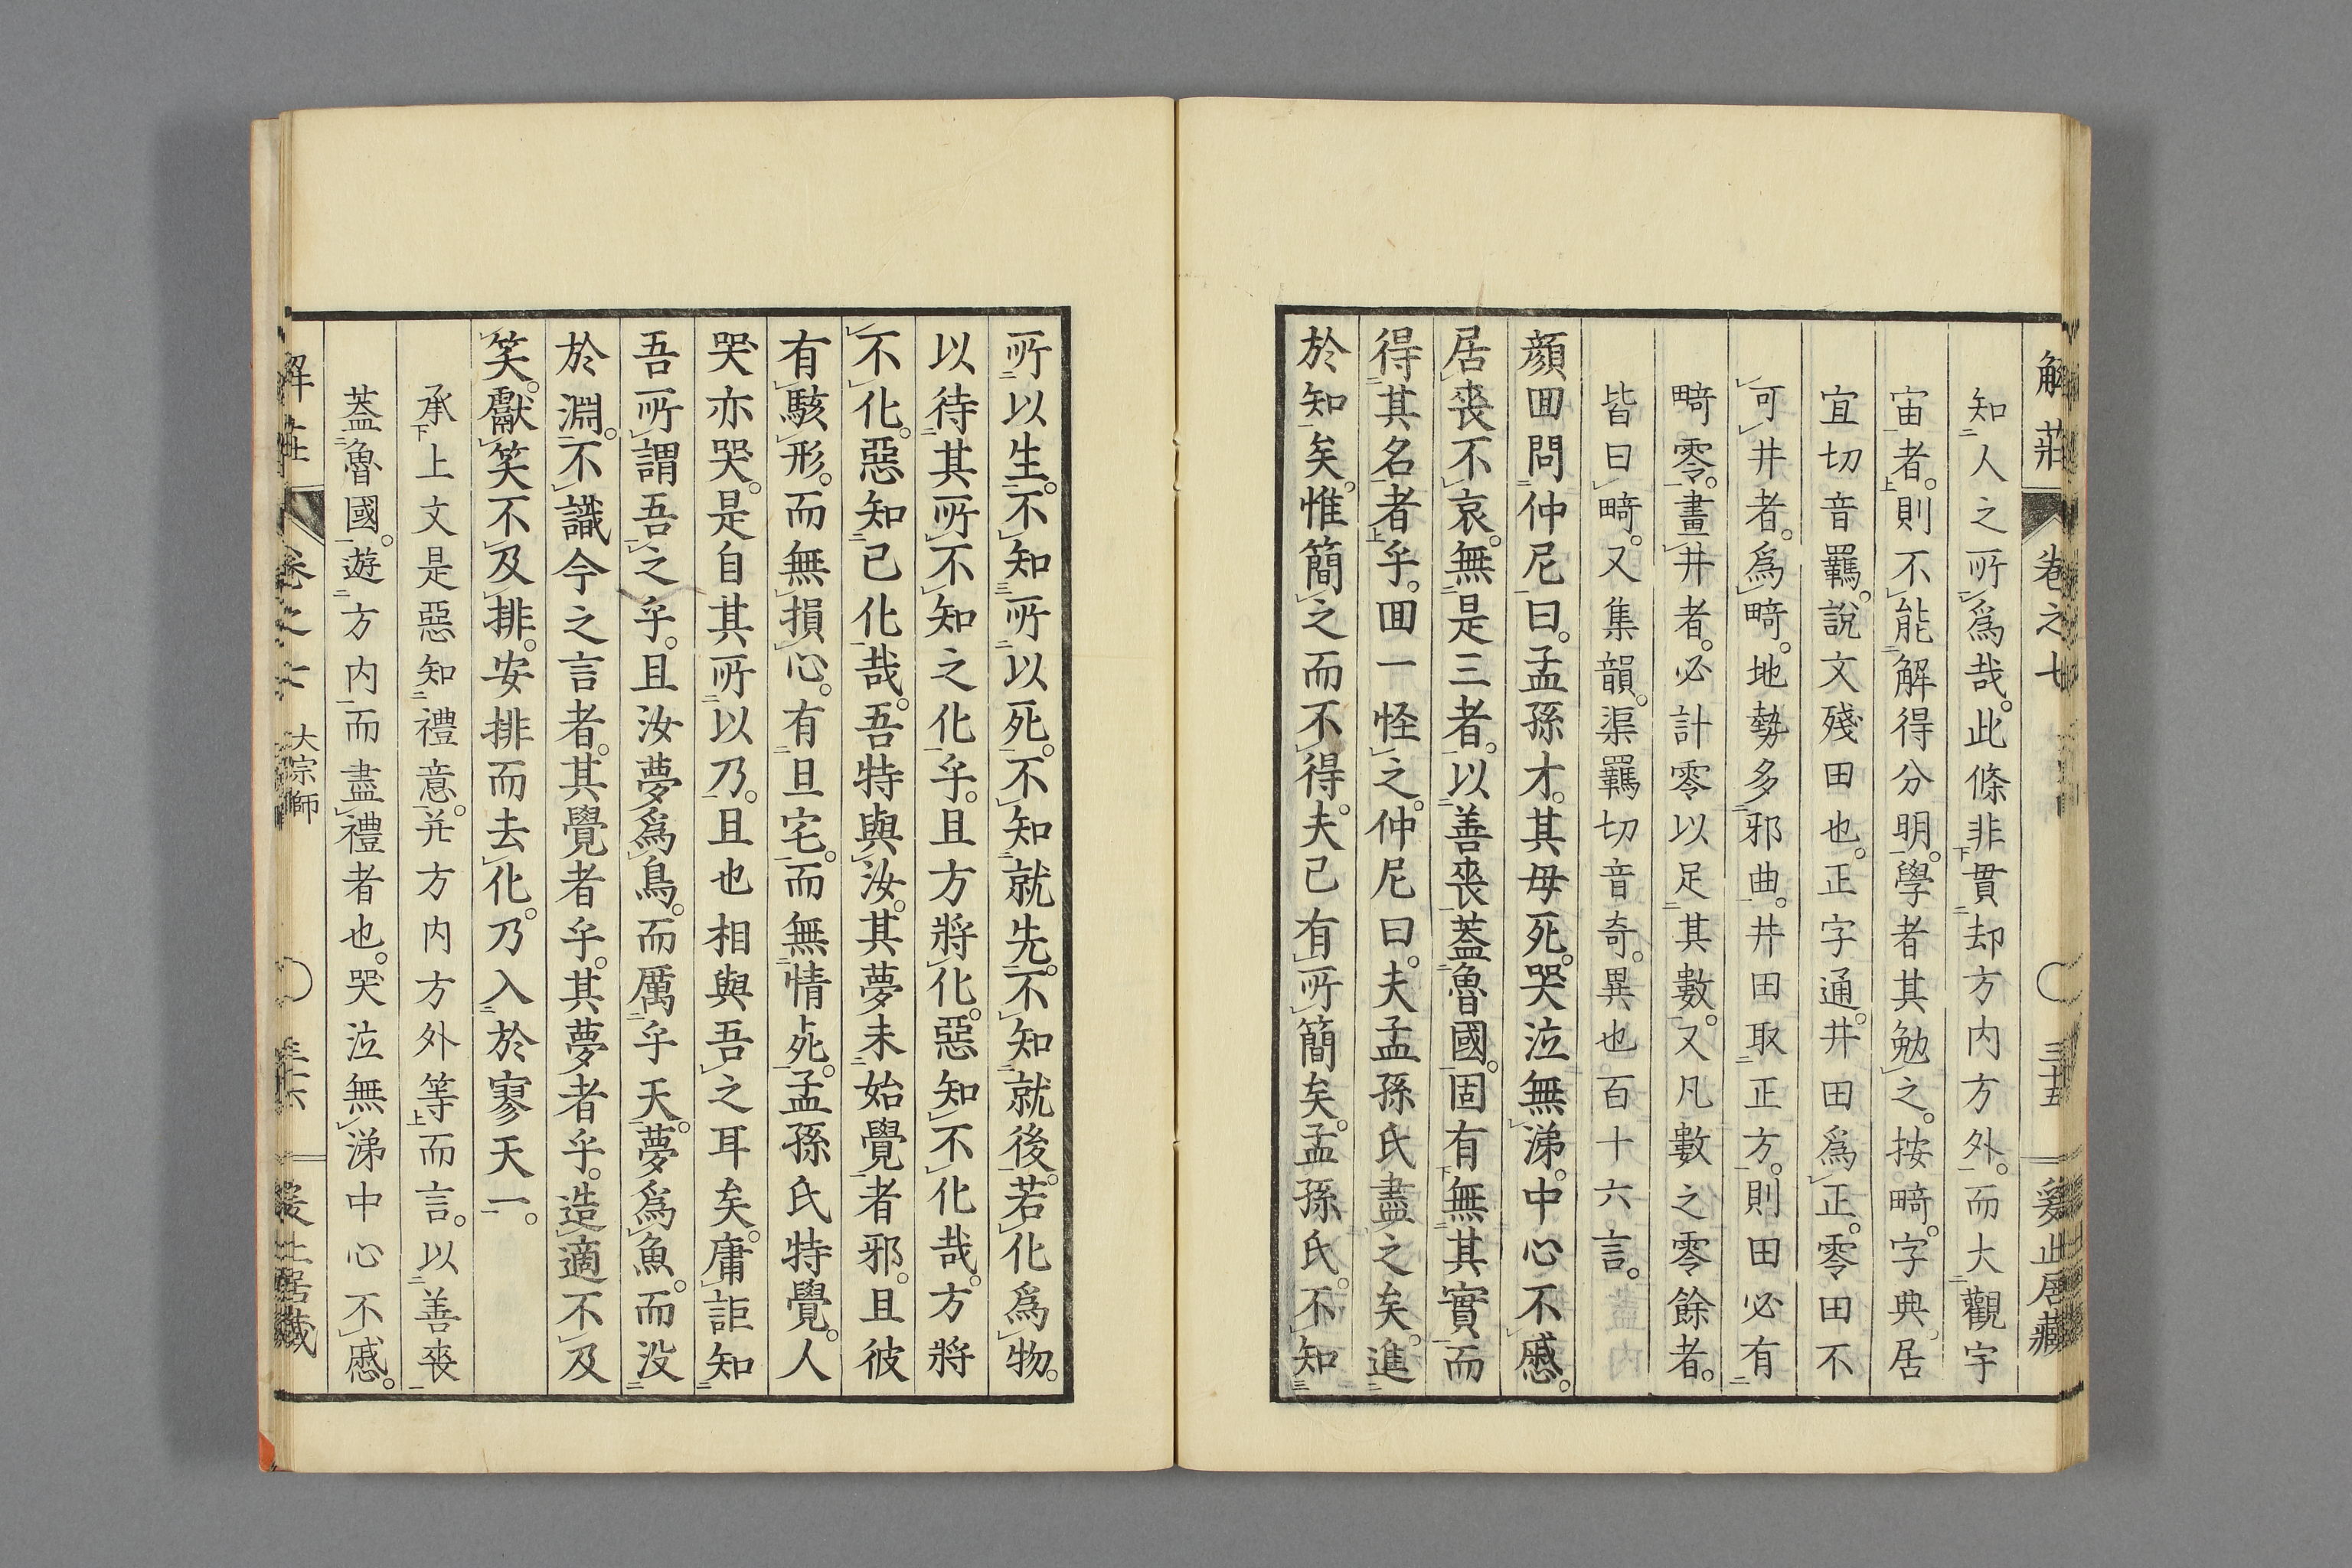 解莊 卷之七 三十五 爰止居藏
知人之所爲哉。此條非貫却方内方外。而大觀宇
宙者。則不能解得分明。學者其勉之。按畸。字典。居
宜切音羈。說文殘田也。正字通。井田爲正。零田不
可井者。爲畸。地勢多邪曲。井田取正方。則田必有
畸零。畫井者。必計零以足其數。又凡數之零餘者。
皆曰畸。又集韻。渠羈切音奇。異也。百十六言。
顔囬問仲尼曰。孟孫才。其母死。哭泣無涕。中心不慼。
居喪不哀。無是三者。以善喪蓋魯國。固有無其實而
得其名者乎。囬一怪之。仲尼曰。夫孟孫氏盡之矣。進
於知矣。惟簡之而不得。夫已有所簡矣。孟孫氏。不知
所以生。不知所以死。不知就先。不知就後。若化爲物。
以待其所不知之化乎。且方將化。惡知不化哉。方將
不化。惡知已化哉。吾特與汝。其夢未始覺者邪。且彼
有駭形。而無損心。有旦宅。而無情死。孟孫氏特覺。人
哭亦哭。是自其所以乃。且也相與吾之耳矣。庸詎知
吾所謂吾之乎。且汝夢爲鳥。而厲乎天。夢爲魚。而没
於淵。不識今之言者。其覺者乎。其夢者乎。造適不及
笑。獻笑不及排。安排而去化。乃入於寥天一。
承上文是惡知禮意。并方内方外等而言。以善喪
蓋魯國。遊方内而盡禮者也。哭泣無涕中心不慼。
解莊 卷之七 大宗師 三十六 爰止居藏